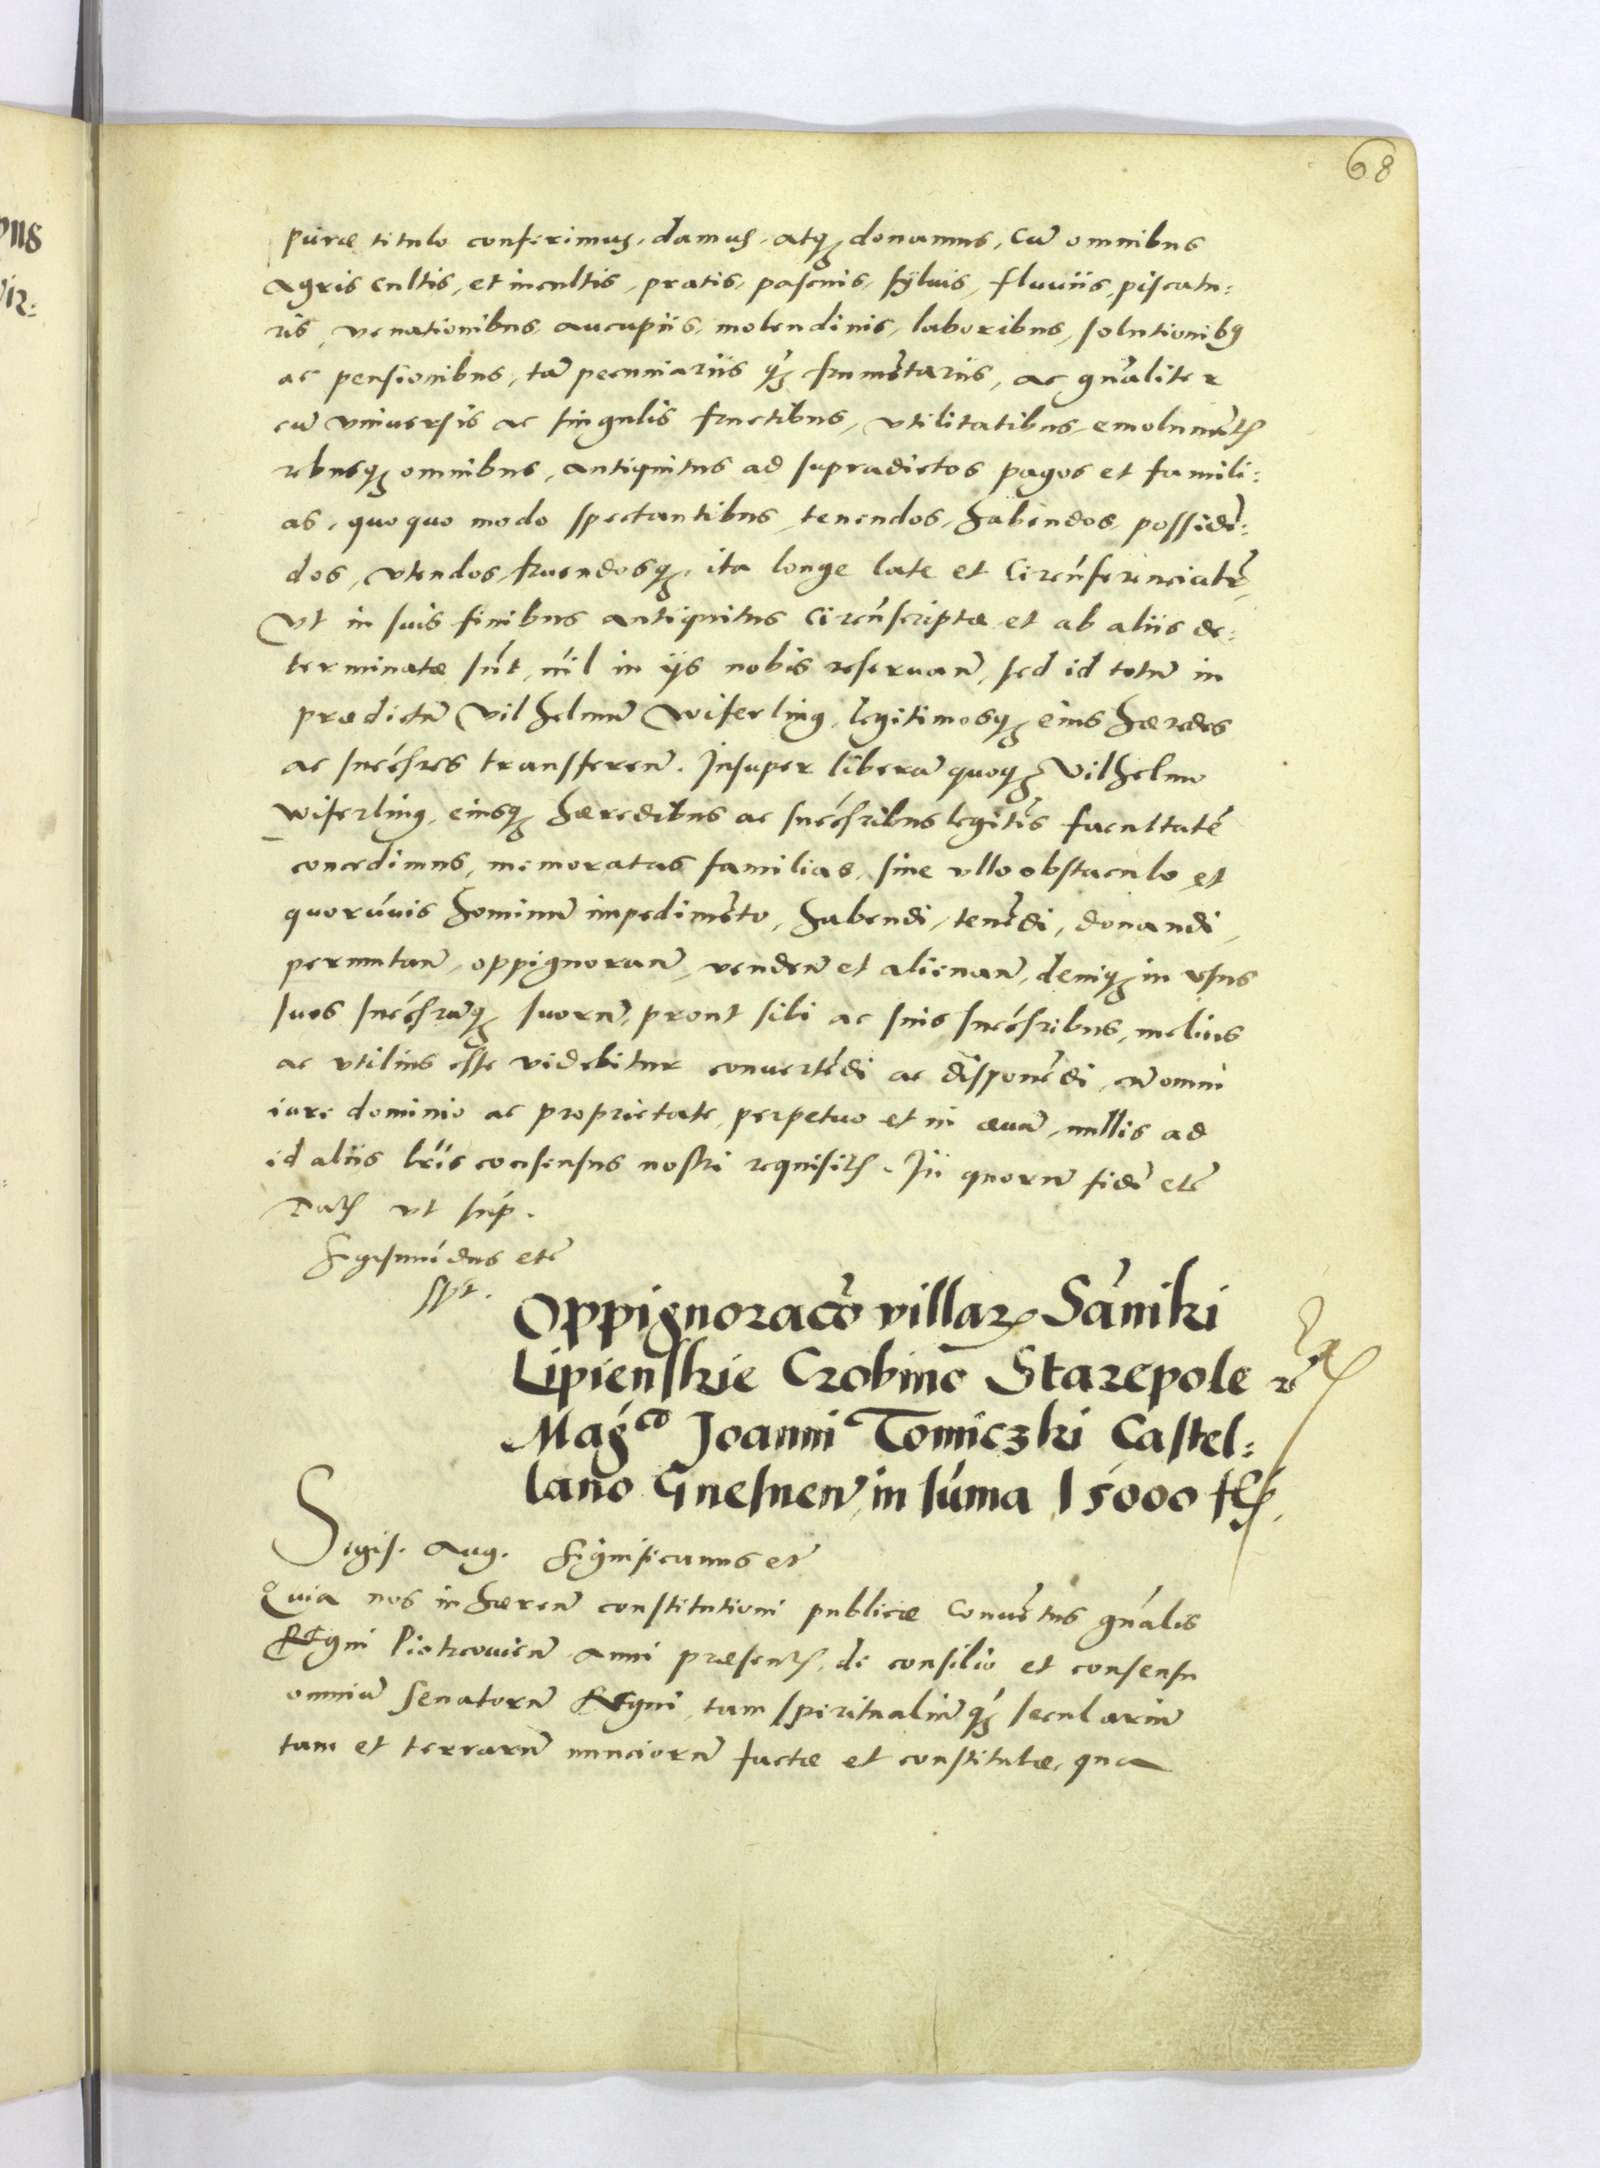 68
puræ titulo conferimus, damus, atq₃ donamus, Cũ omnibus
Agris cultis, et incultis, pratis, pascuis, sÿluis, fluuiis, piscatu:
ris, venationibus, aucupiis, molendinis, laboribus, solutionibq
ac pensionibus, tã pecuniariis q̃₃ frumẽtariis, ac gñaliter
cũ vniuersis ac singulis fructibus, vtilitatibus, emolumẽtꝭ
rebusq₃ omnibus, antiquitus ad supradictos pagos et famili:
as, quoquo modo spectantibus, tenendos, habendos, possidẽ:
dos, vtendos, fruendosq₃, ita longe late et Circũferẽncialr̃,
Vt in suis finibus antiquitus Circũscriptæ et ab aliis de:
terminatæ sũt, nil in ijs nobis reseruañ, sed id totũ in
prædictũ Vilhelmũ Wiferling, legitimosq₃ eius hæredes
ac succ̃sres transfereñ. Insuper liberã quoq₃ Vilhelmo
Wiferling, eiusq₃ hæredibus ac succ̃sribus legitĩs facultatẽ
concedimus, memoratas familias, sine vllo obstaculo et
quorũuis hominũ impedimẽto, habendi, tenẽdi, donandi,
permutañ, oppignorañ, vendeñ et alienañ, deniq₃ in vsus
suos succ̃srũq₃ suorũ, prout sibi ac suis succ̃sribus, melius
ac vtilius esse videbitur conuertẽdi ac disponẽdi, cũ omni
iure dominio ac proprietate, perpetuo et in æuũ, nullis ad
id aliis lr̃is consensus nostri requisitꝭ. In quorũ fidẽ etc̃
Datꝭ vt sup̃.
Sigismũdus etc̃
sspt.
Oppignoracõ villaꝝ Sãniki
Lipienskie Crobinõ Starepole
Mag.co Joanni Tomiczki Castel:
lano Gnesneñ, in sũma 15000 flꝭ.
Sigis. Aug. Significamus etc̃
Quia nos inhæreñ constitutioni publicæ Conuẽtus gñalis
Regni Piotrcouieñ Anni præsentꝭ, de consilio et consensu
omniũ Senatorũ Regni, tam spiritualiũ q̃₃ seculariũ
tam et terrarũ nunciorũ factæ et constitutæ, qua